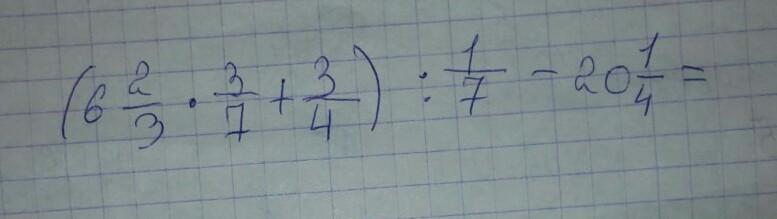 (6 2/3 · 3/7 + 3/4) : 1/7 - 20 1/4 =